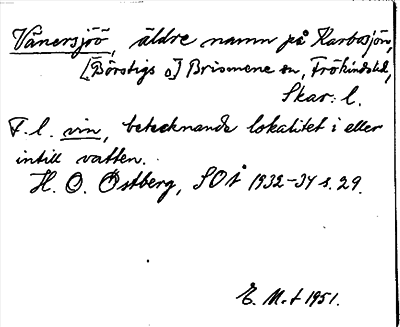 Vänersjöö, äldre namn på Karbosjön,
[Börstigs o] Brismene sn, Frökinds hd,
Skar. l.
F. l. vin, betecknande lokalitet i eller
intill vatten.
H. O. Östberg, SOÅ 1932-34 s. 29.
E. M-t 1951.